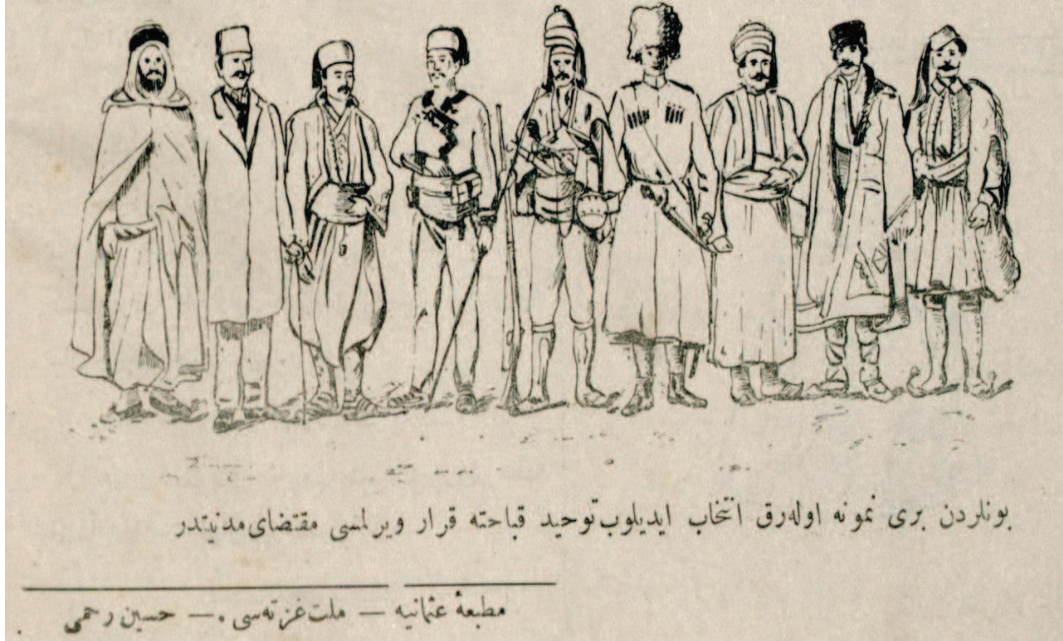 بونلردن بری نمونه اوله‌رق انتخاب ایدیلوب توحید قباحته قرار ویرلمسی مقتضای مدنیتدر
مطبعهٔ عثمانیه — ملت غزته‌سی . — حسین رحمی